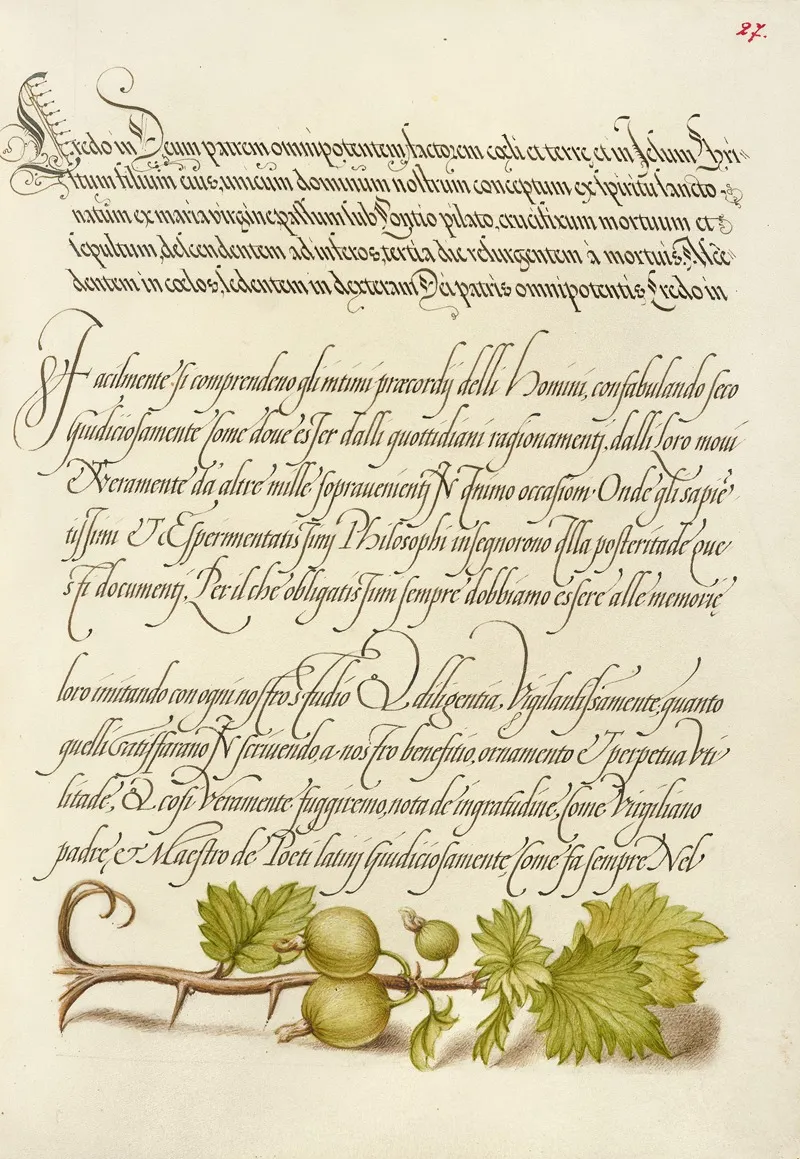 27.
Credo in Deum patrem omnipotentem, factorem cœli et terre, et in Jesum Chri-
stum filium eius, unicum dominum nostrum conceptum ex spiritu sancto
natum ex maria virgine, passum sub Pontio pilato, crucifixum mortuum et
sepultum, descendentem ad inferos, tertia die resurgentem à mortuis. Ascē
dentem in cœlos, sedentem in dexteram Dei patris omnipotentis Credo in
Facilmente si comprendeno gli intimi præcordij delli Homini, confabulando seco
Giudiciosamente Come doue esser dalli quottidiani ragionamenti, dalli loro moui
Veramente da altre mille sopravenienti N animo occasioni. Onde gli sapiē
tissimi & Esperimentatissimi Philosophi insegnorono alla posteritade que
sti documenti, Per il che obligatissimi sempre dobbiamo essere alle memorie
loro imitando con ogni nostro studio & diligentia, Vigilantissamente, quanto
quelli satisffarano N scriuendo, a nostro benefitio, ornamento & perpetua vti
litade, & cosi Veramente fuggiremo, nota de ingratudine, Come Virgiliano
padre, & Maestro de Poeti latini Giudiciosamente, Come fa sempre Nel